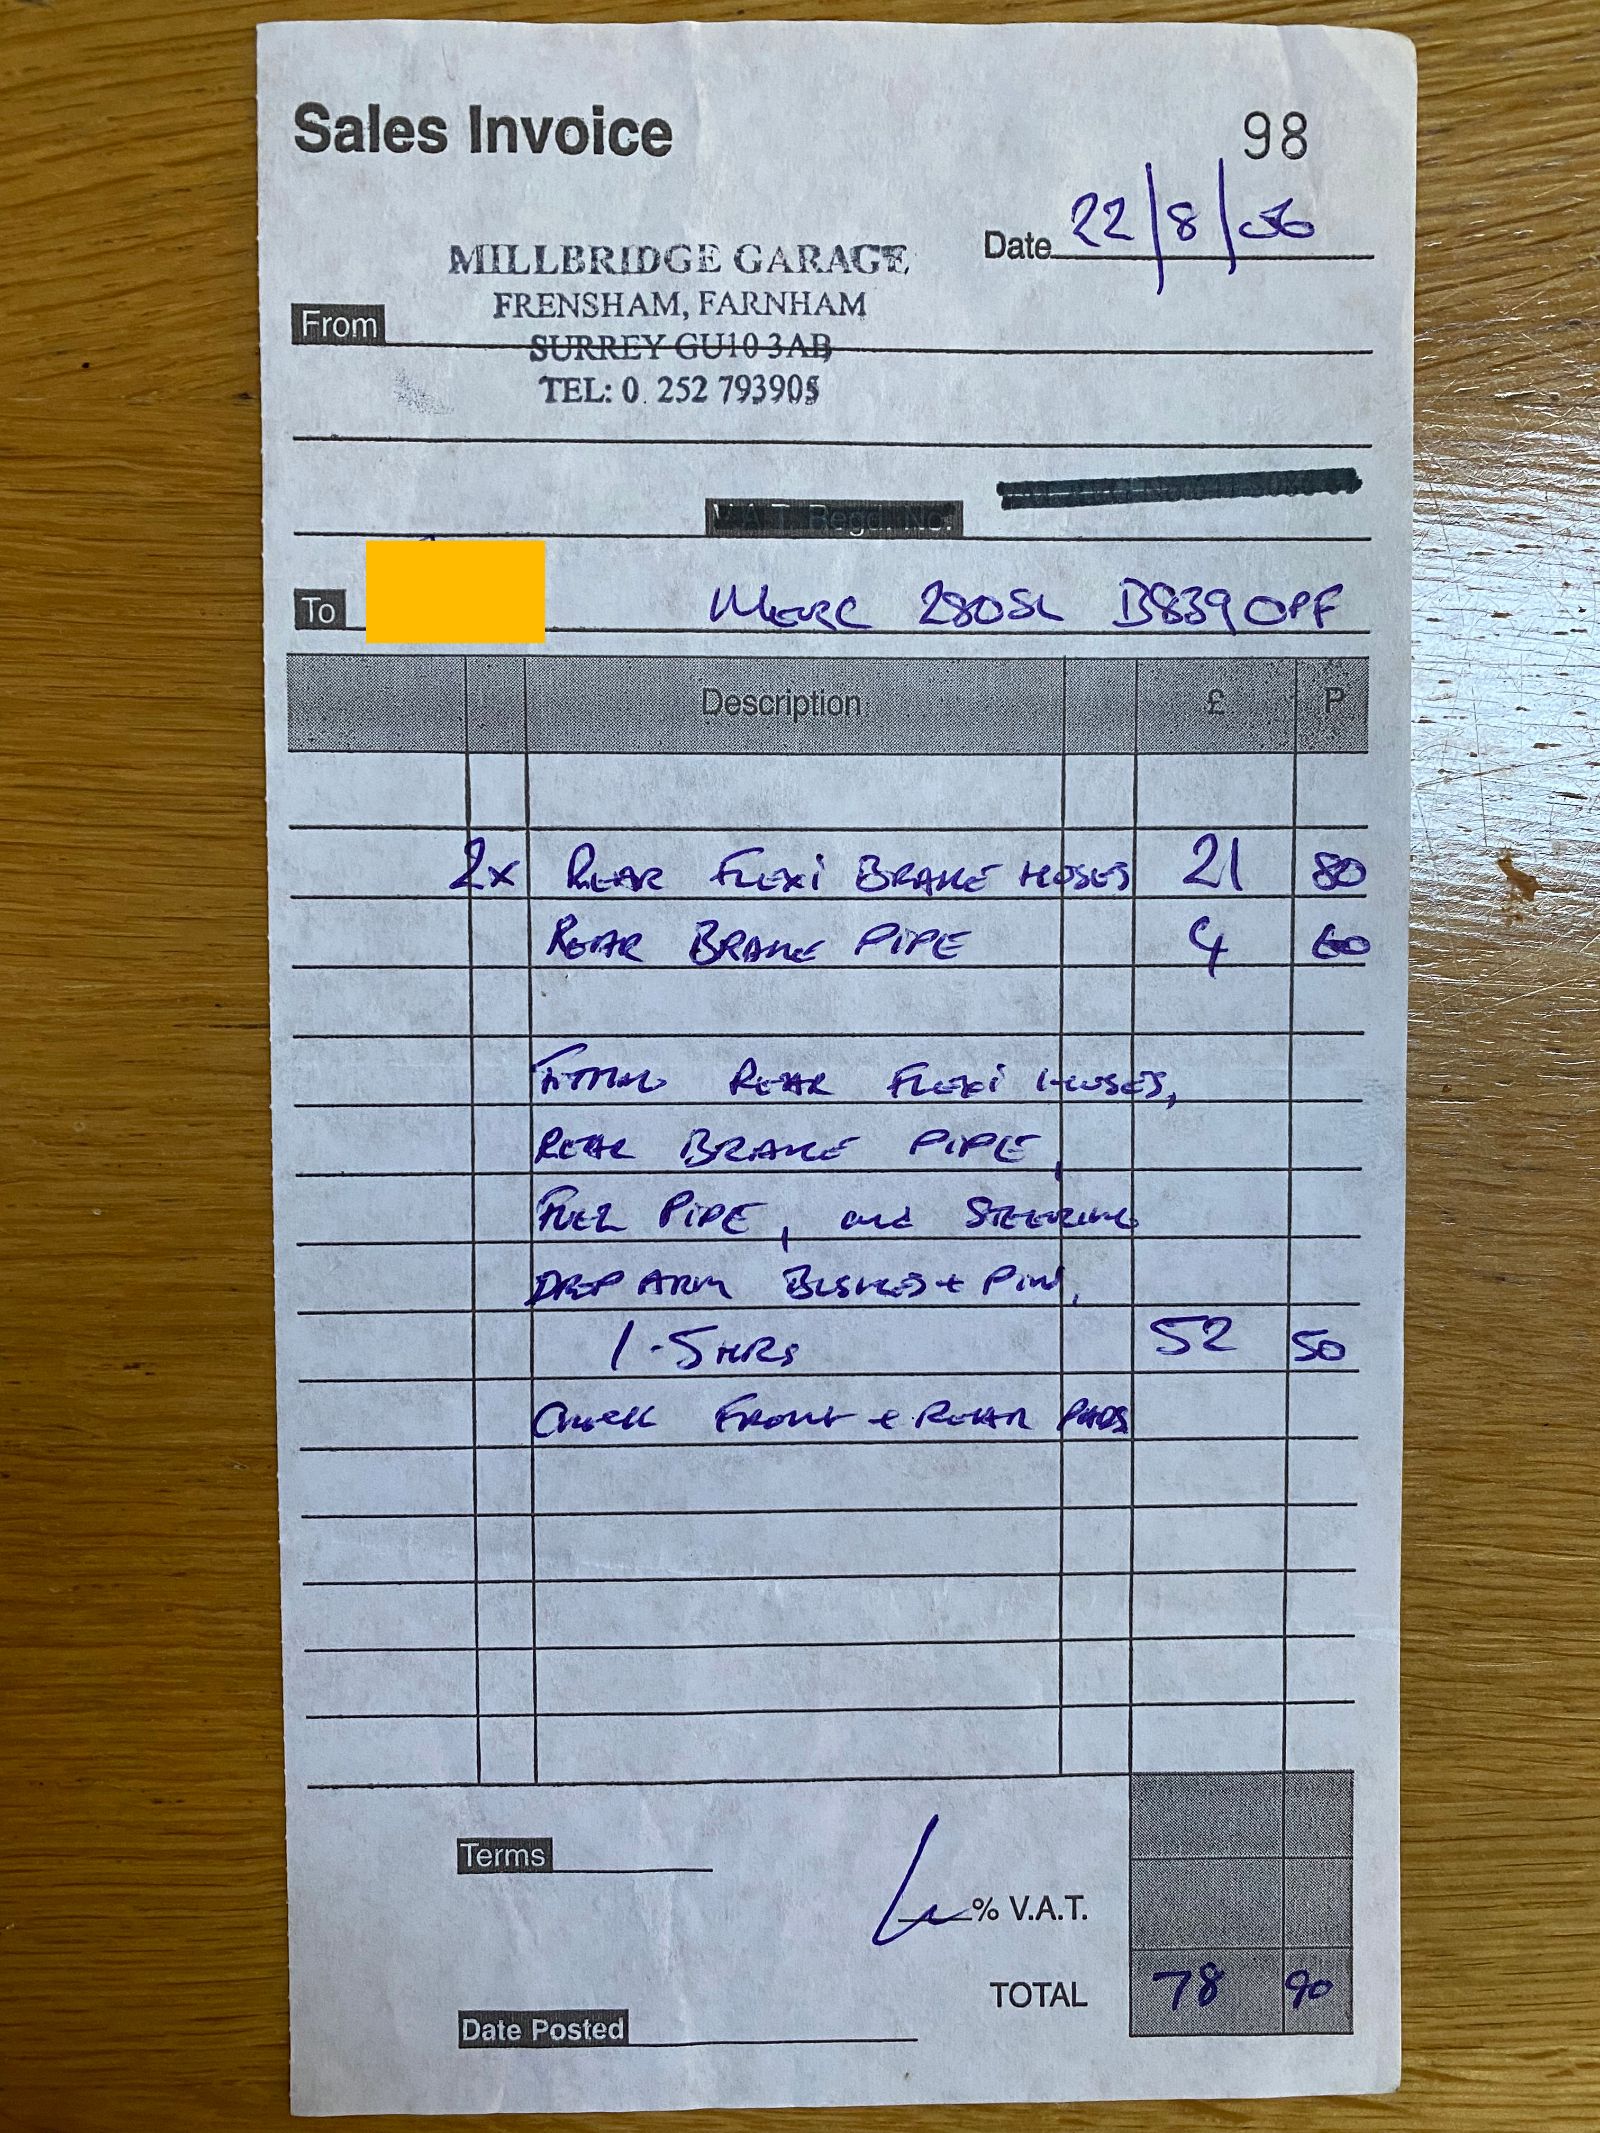 Sales Invoice 98
Date 22/8/06
MILLBRIDGE GARAGE
FRENSHAM, FARNHAM
From
SURREY GU10 3AB
TEL: 0 252 793905
V.A.T. Regd. No.
To Merc 280SL B839 OPF
Description £ P
2x REAR FLEXI BRAKE HOSES 21 80
REAR BRAKE PIPE 4 60
FITTING REAR FLEXI HOSES,
REAR BRAKE PIPE,
FUEL PIPE, and STEERING
DROP ARM BUSHES + PIN.
1.5 HRS 52 50
CHECK FRONT & REAR PADS
Terms
% V.A.T.
TOTAL 78 90
Date Posted